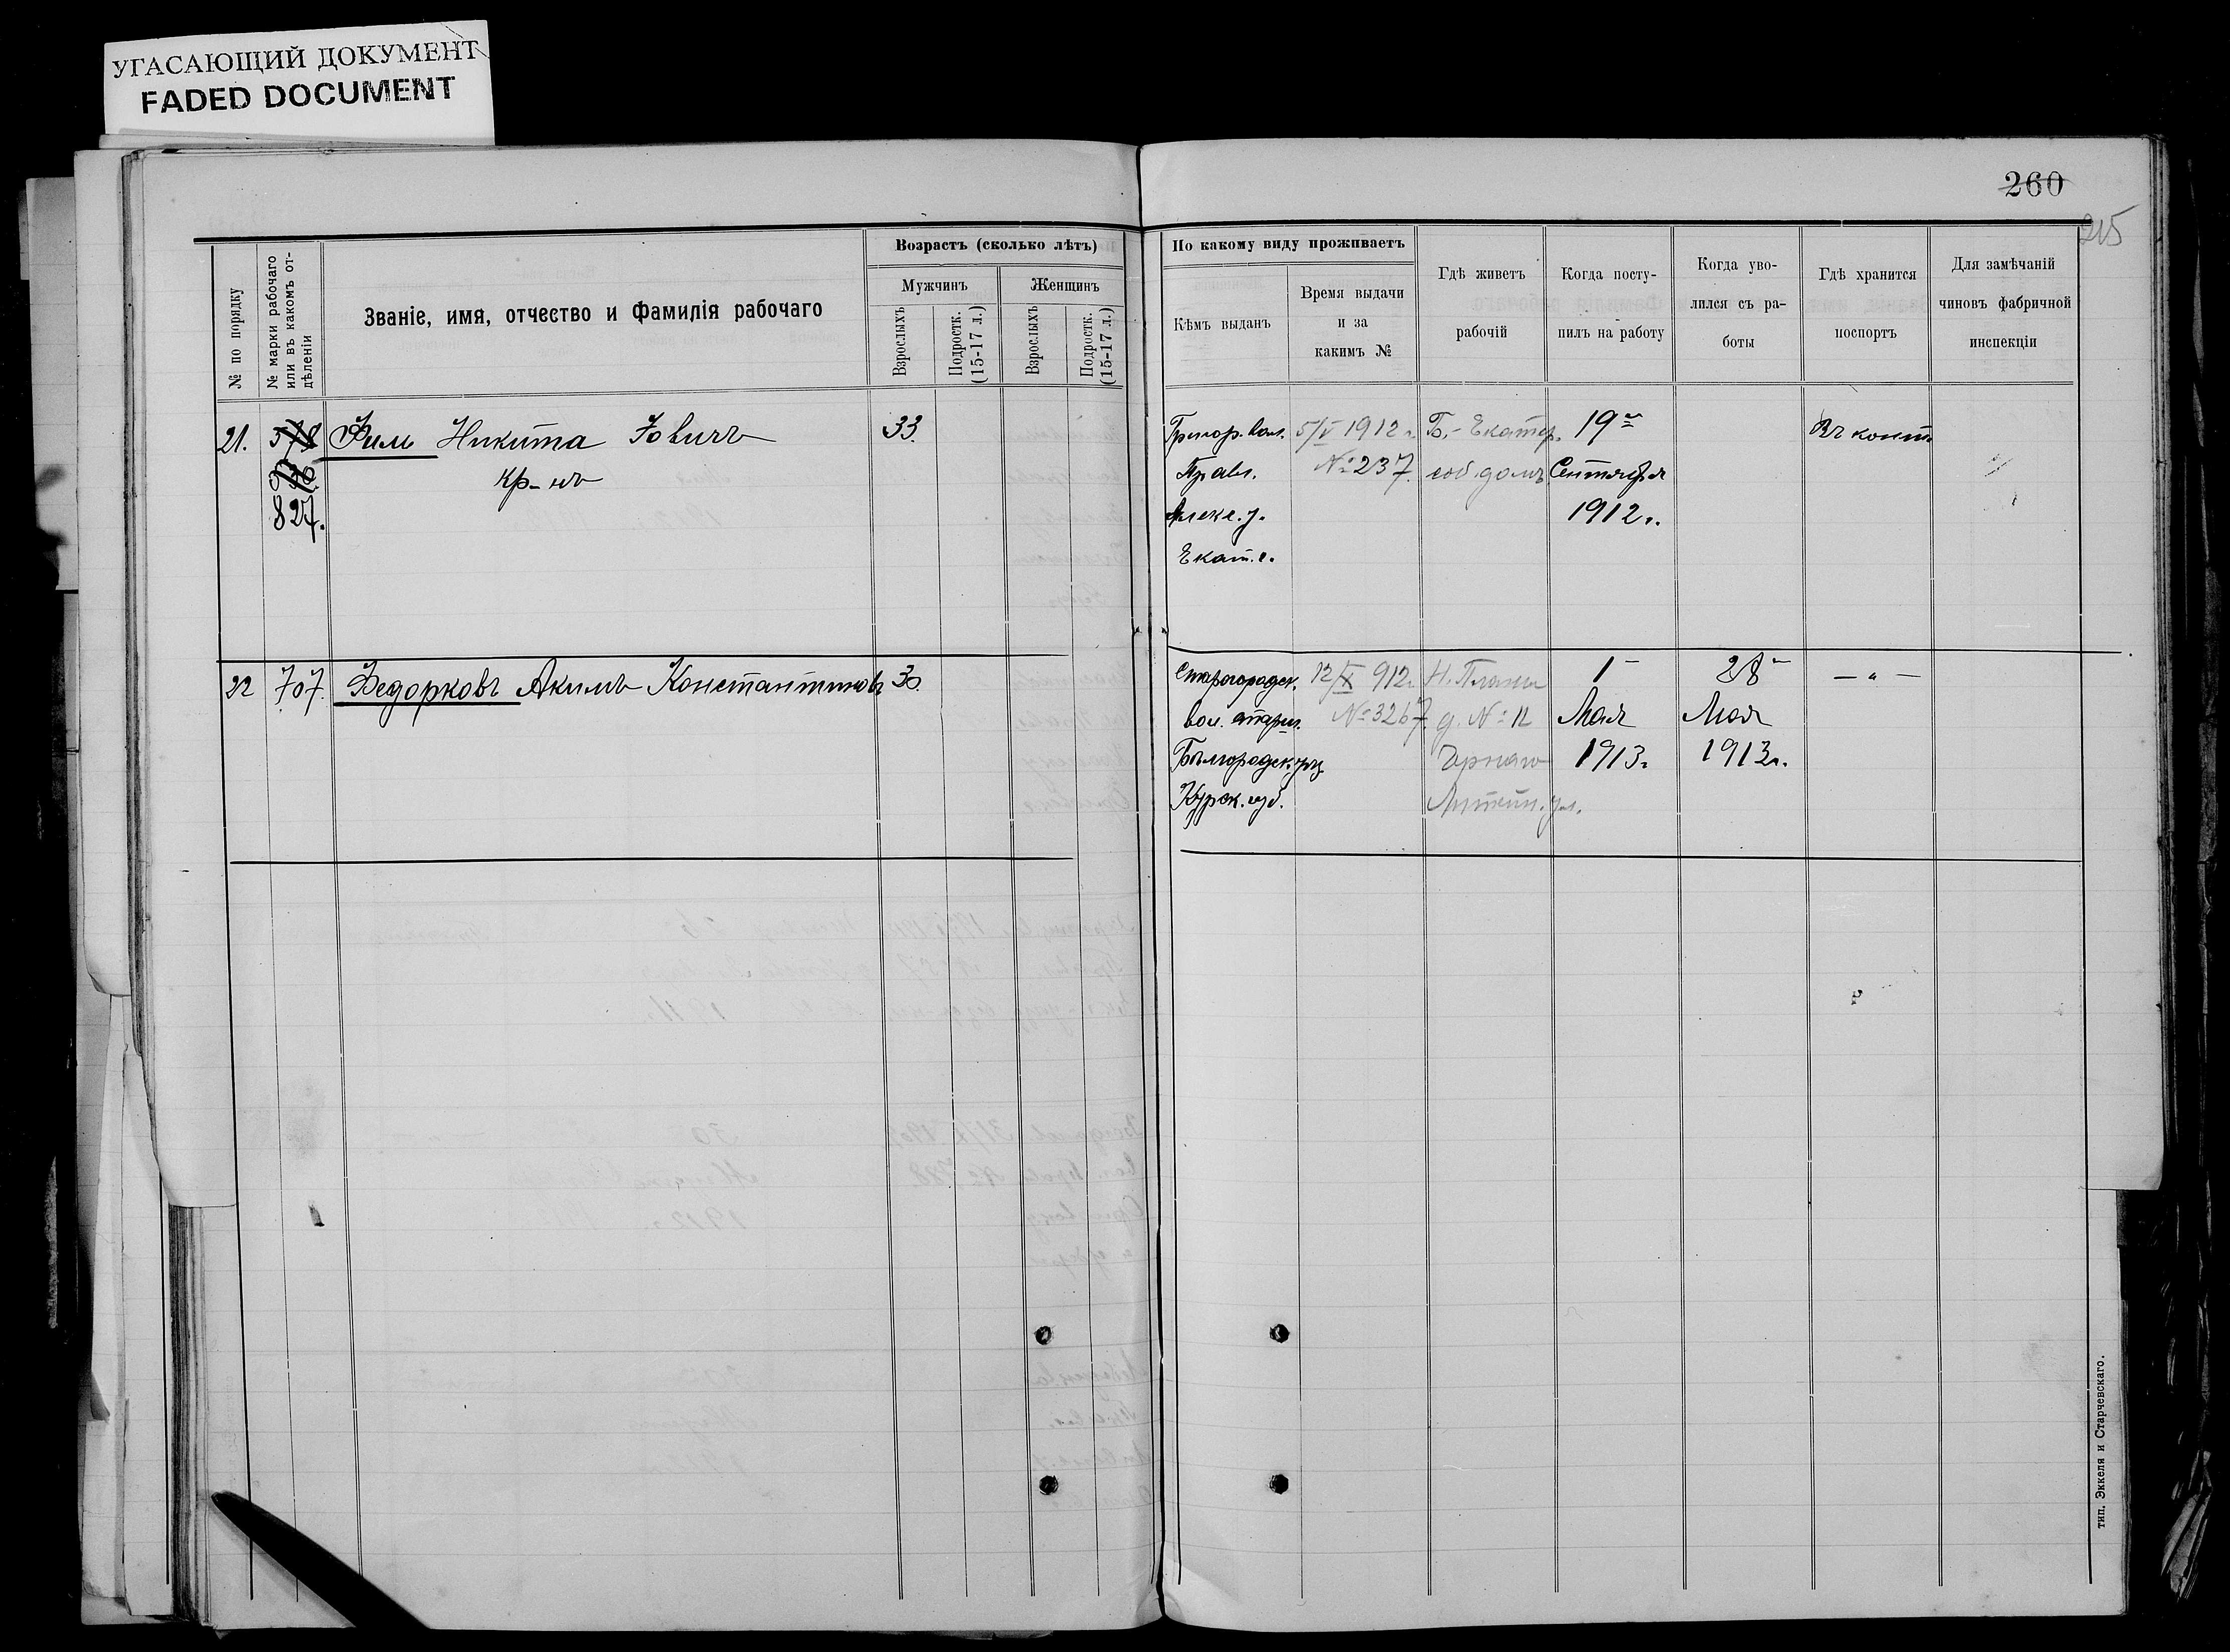 УГАСАЮЩИЙ ДОКУМЕНТ
FADED DOCUMENT
260
215
№ по порядку
№ марки рабочаго
или въ какомъ от-
дѣленіи
Званіе, имя, отчество и фамилія рабочаго
Возрастъ (сколько лѣтъ)
Мужчинъ
Женщинъ
Взрослыхъ
Подростк.
(15-17 л.)
Взрослыхъ
Подростк.
(15-17 л.)
По какому виду проживаетъ
Кѣмъ выданъ
Время выдачи
и за
какимъ №
Гдѣ живетъ
рабочій
Когда посту-
пилъ на работу
Когда уво-
лился съ ра-
боты
Гдѣ хранится
поспортъ
Для замѣчаній
чиновъ фабричной
инспекціи
21.
578
827.
Фим Никита Іовичъ
кр-нъ
33.
Григор. вол.
Правл.
Алекс. у.
Екат. г.
5/V 1912 г.
№ 237.
Б.-Екатер.
соб. домъ
19го
Сентября
1912 г.
Въ конт.
22
707.
Федорковъ Акимъ Константиновъ
30.
Старогородск.
вол. старш.
Бѣлгородск. уѣз.
Курск. губ.
12/X 912 г.
№ 3267.
Н. Планы
д. № 12
Литейн. ул.
1-
Мая
1913 г.
28-
Мая
1913 г.
— " —
тип. Эккеля и Старчевскаго.